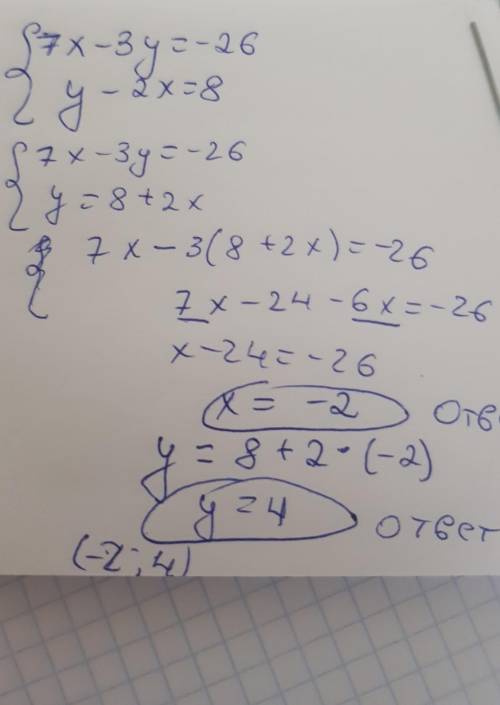 7x-3y=-26
y-2x=8
7x-3y=-26
y=8+2x
7x-3(8+2x)=-26
7x-24-6x=-26
x-24=-26
x=-2 Отв
y=8+2·(-2)
y=4 ответ
(-2;4)